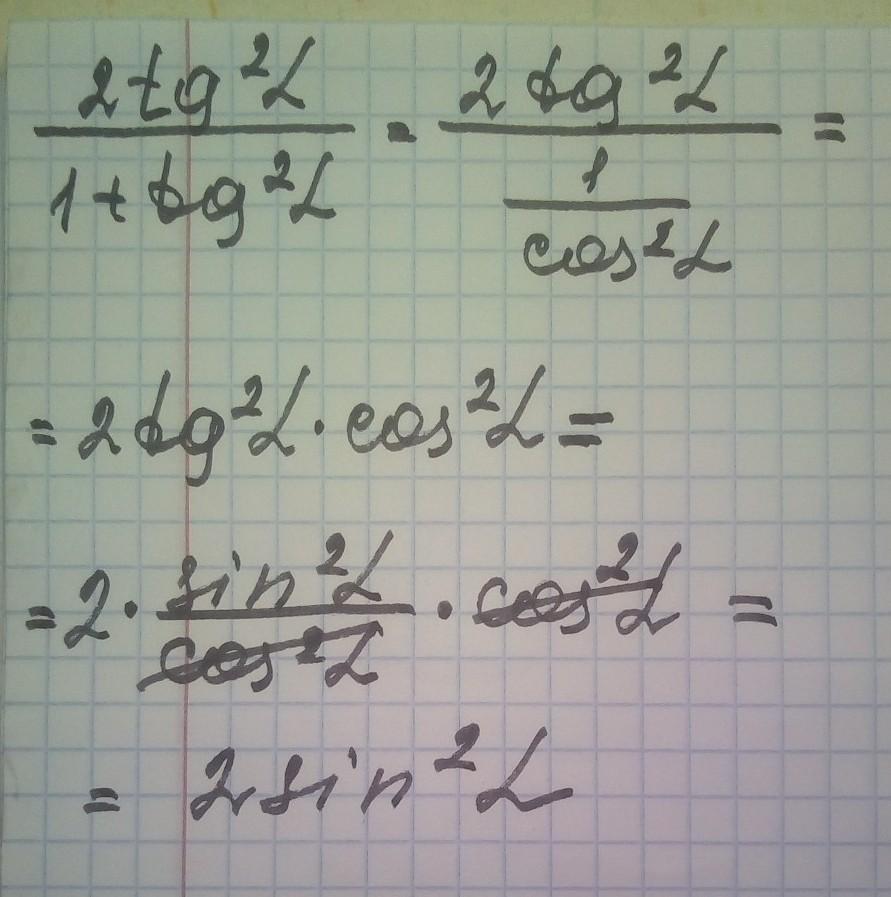 2tg²α/(1+tg²α) = 2tg²α/(1/cos²α) =
= 2tg²α · cos²α =
= 2 · sin²α/cos²α · cos²α =
= 2sin²α